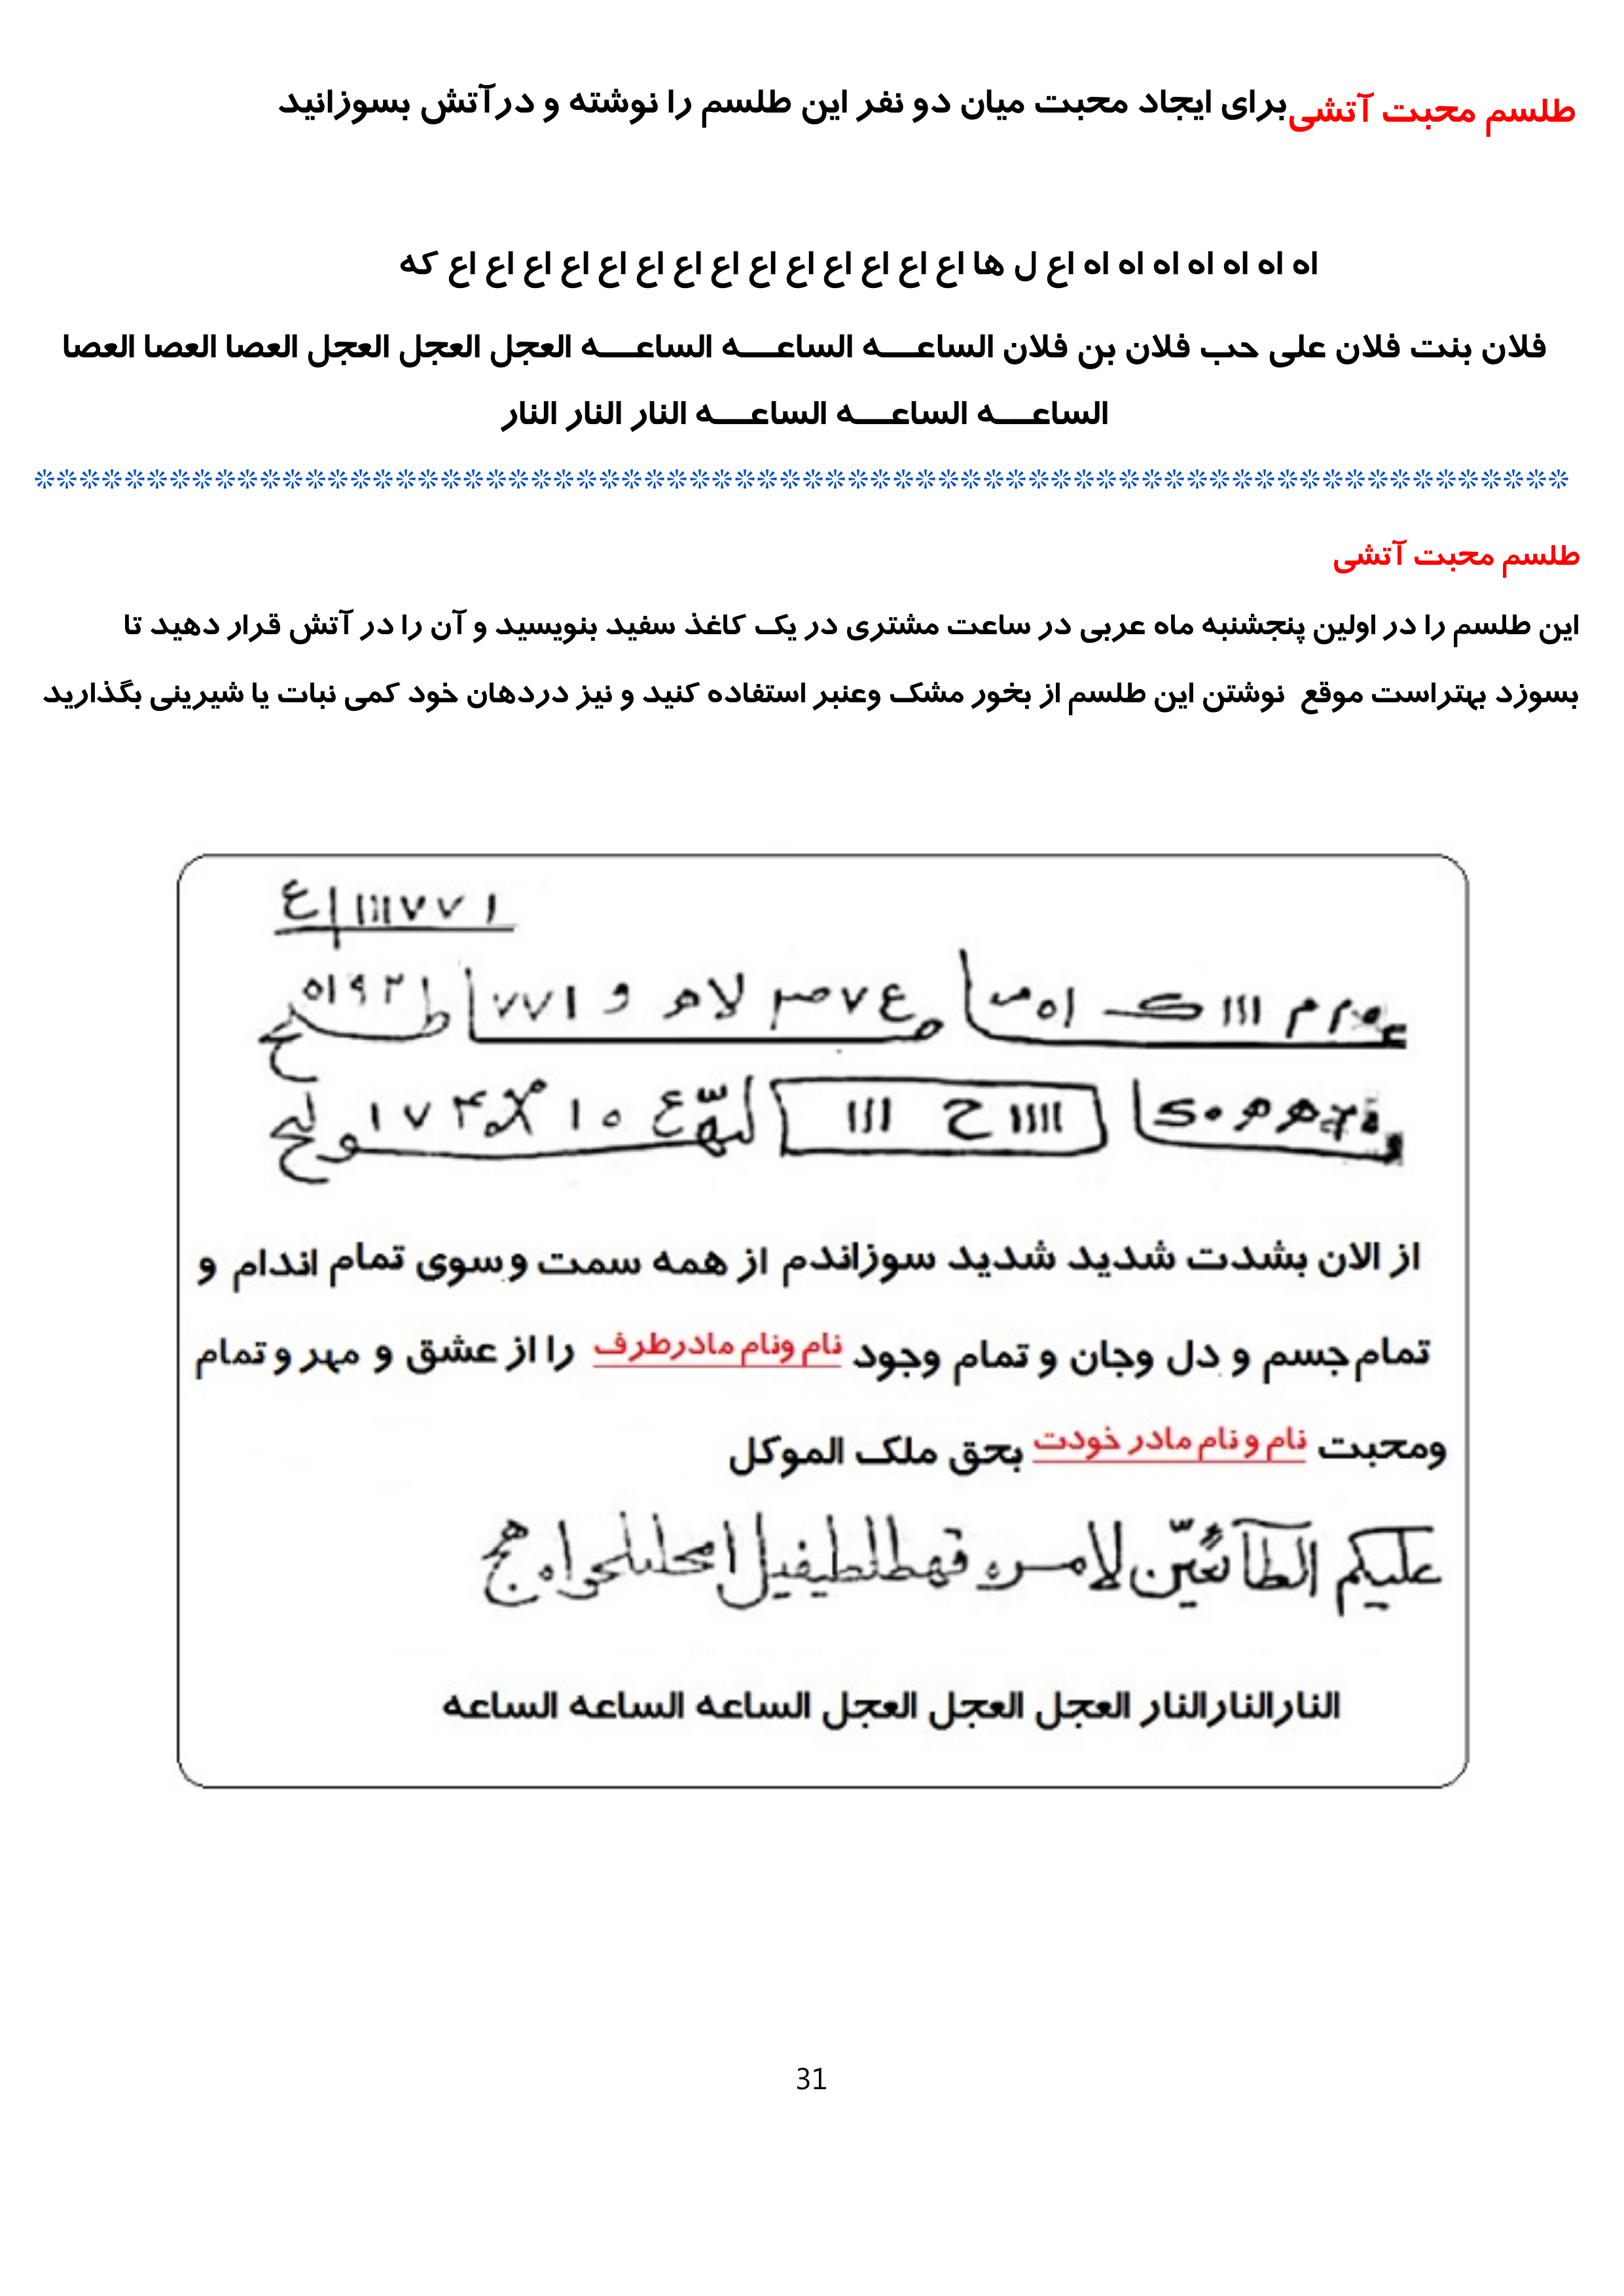 طلسم محبت آتشی برای ایجاد محبت میان دو نفر این طلسم را نوشته و درآتش بسوزانید
اه اه اه اه اه اه اه اع ل ها اع اع اع اع اع اع اع اع اع اع اع اع اع اع که
فلان بنت فلان علی حب فلان بن فلان الساعـــه الساعـــه الساعـــه العجل العجل العجل العصا العصا العصا
الساعـــه الساعـــه الساعـــه النار النار النار
❊❊❊❊❊❊❊❊❊❊❊❊❊❊❊❊❊❊❊❊❊❊❊❊❊❊❊❊❊❊❊❊❊❊❊❊❊❊❊❊❊❊❊❊❊❊❊❊❊❊❊❊❊❊❊❊❊❊❊❊❊❊❊❊❊❊❊❊
طلسم محبت آتشی
این طلسم را در اولین پنجشنبه ماه عربی در ساعت مشتری در یک کاغذ سفید بنویسید و آن را در آتش قرار دهید تا
بسوزد بهتراست موقع نوشتن این طلسم از بخور مشک وعنبر استفاده کنید و نیز دردهان خود کمی نبات یا شیرینی بگذارید
از الان بشدت شدید شدید سوزاندم از همه سمت و سوی تمام اندام و
تمام جسم و دل وجان و تمام وجود نام ونام مادرطرف را از عشق و مهر و تمام
ومحبت نام و نام مادر خودت بحق ملک الموکل
علیکم الطآئعین لامره
النارالنارالنار العجل العجل العجل الساعه الساعه الساعه
31